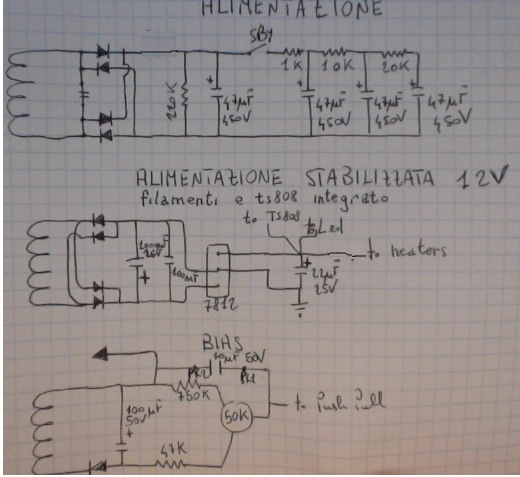 ALIMENTAZIONE
SBY
1K 10K 20K
220K
47µF
450V
47µF
450V
47µF
450V
47µF
450V
ALIMENTAZIONE STABILIZZATA 12V
filamenti e ts808 integrato
to TS808
to Led
to heaters
1000µF
25V
+
100µF
7812
+
22µF
25V
BIAS
10µF 50V
750K
50K
to Push Pull
100µF
50V
+
47K